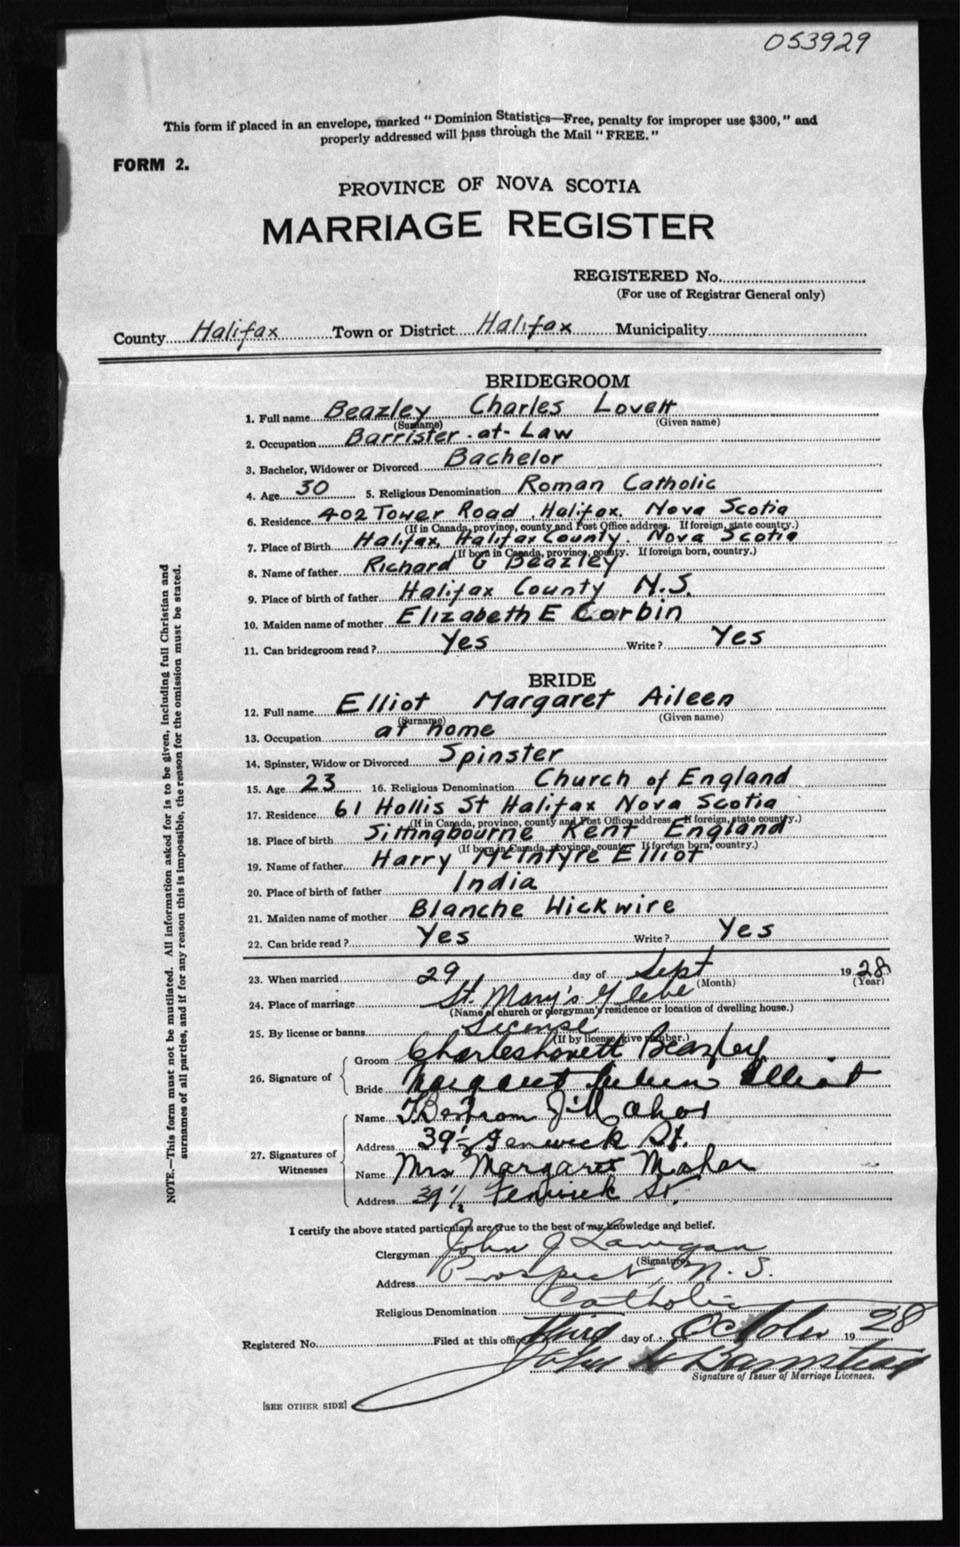 053929
This form if placed in an envelope, marked "Dominion Statistics—Free, penalty for improper use $300," and
properly addressed will pass through the Mail "FREE."
FORM 2.
PROVINCE OF NOVA SCOTIA
MARRIAGE REGISTER
REGISTERED No.
(For use of Registrar General only)
County Halifax Town or District Halifax Municipality
BRIDEGROOM
1. Full name Beazley Charles Lovett
(Surname) (Given name)
2. Occupation Barrister-at-Law
3. Bachelor, Widower or Divorced Bachelor
4. Age 30 5. Religious Denomination Roman Catholic
6. Residence 402 Tower Road, Halifax. Nova Scotia
(If in Canada, province, county and Post Office address. If foreign, state country.)
7. Place of Birth Halifax, Halifax County. Nova Scotia
(If born in Canada, province, county. If foreign born, country.)
8. Name of father Richard G Beazley
9. Place of birth of father Halifax County N.S.
10. Maiden name of mother Elizabeth E Corbin
11. Can bridegroom read? Yes Write? Yes
BRIDE
12. Full name Elliot Margaret Aileen
(Surname) (Given name)
13. Occupation at home
14. Spinster, Widow or Divorced Spinster
15. Age 23 16. Religious Denomination Church of England
17. Residence 61 Hollis St Halifax Nova Scotia
(If in Canada, province, county and Post Office address. If foreign, state country.)
18. Place of birth Sittingbourne Kent England
(If born in Canada, province, county. If foreign born, country.)
19. Name of father Harry McIntyre Elliot
20. Place of birth of father India
21. Maiden name of mother Blanche Wickwire
22. Can bride read? Yes Write? Yes
23. When married 29 day of Sept 1928
(Month) (Year)
24. Place of marriage St. Mary's Glebe
(Name of church or clergyman's residence or location of dwelling house.)
25. By license or banns License
(If by license, give number.)
26. Signature of Groom Charles Lovett Beazley
Bride Margaret Aileen Elliot
27. Signatures of Witnesses
Name Bertram J Mahar
Address 39½ Fenwick St.
Name Mrs Margaret Mahar
Address 39½ Fenwick St.
I certify the above stated particulars are true to the best of my knowledge and belief.
Clergyman John J Lanigan
(Signature)
Address Prospect, N.S.
Religious Denomination Catholic
Registered No. Filed at this office Third day of October 1928
John Barnstead
Signature of Issuer of Marriage Licenses.
[SEE OTHER SIDE]
NOTE.—This form must not be mutilated. All information asked for is to be given, including full Christian and
surnames of all parties, and if for any reason this is impossible, the reason for the omission must be stated.